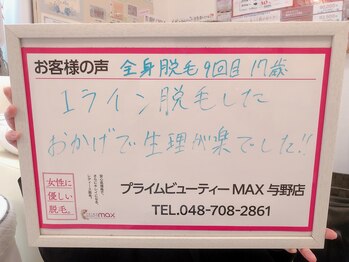 お客様の声 全身脱毛9回目 17歳
Iライン脱毛した
おかげで生理が楽でした!!
女性に
優しい
脱毛。
max
プライムビューティーMAX 与野店
TEL.048-708-2861